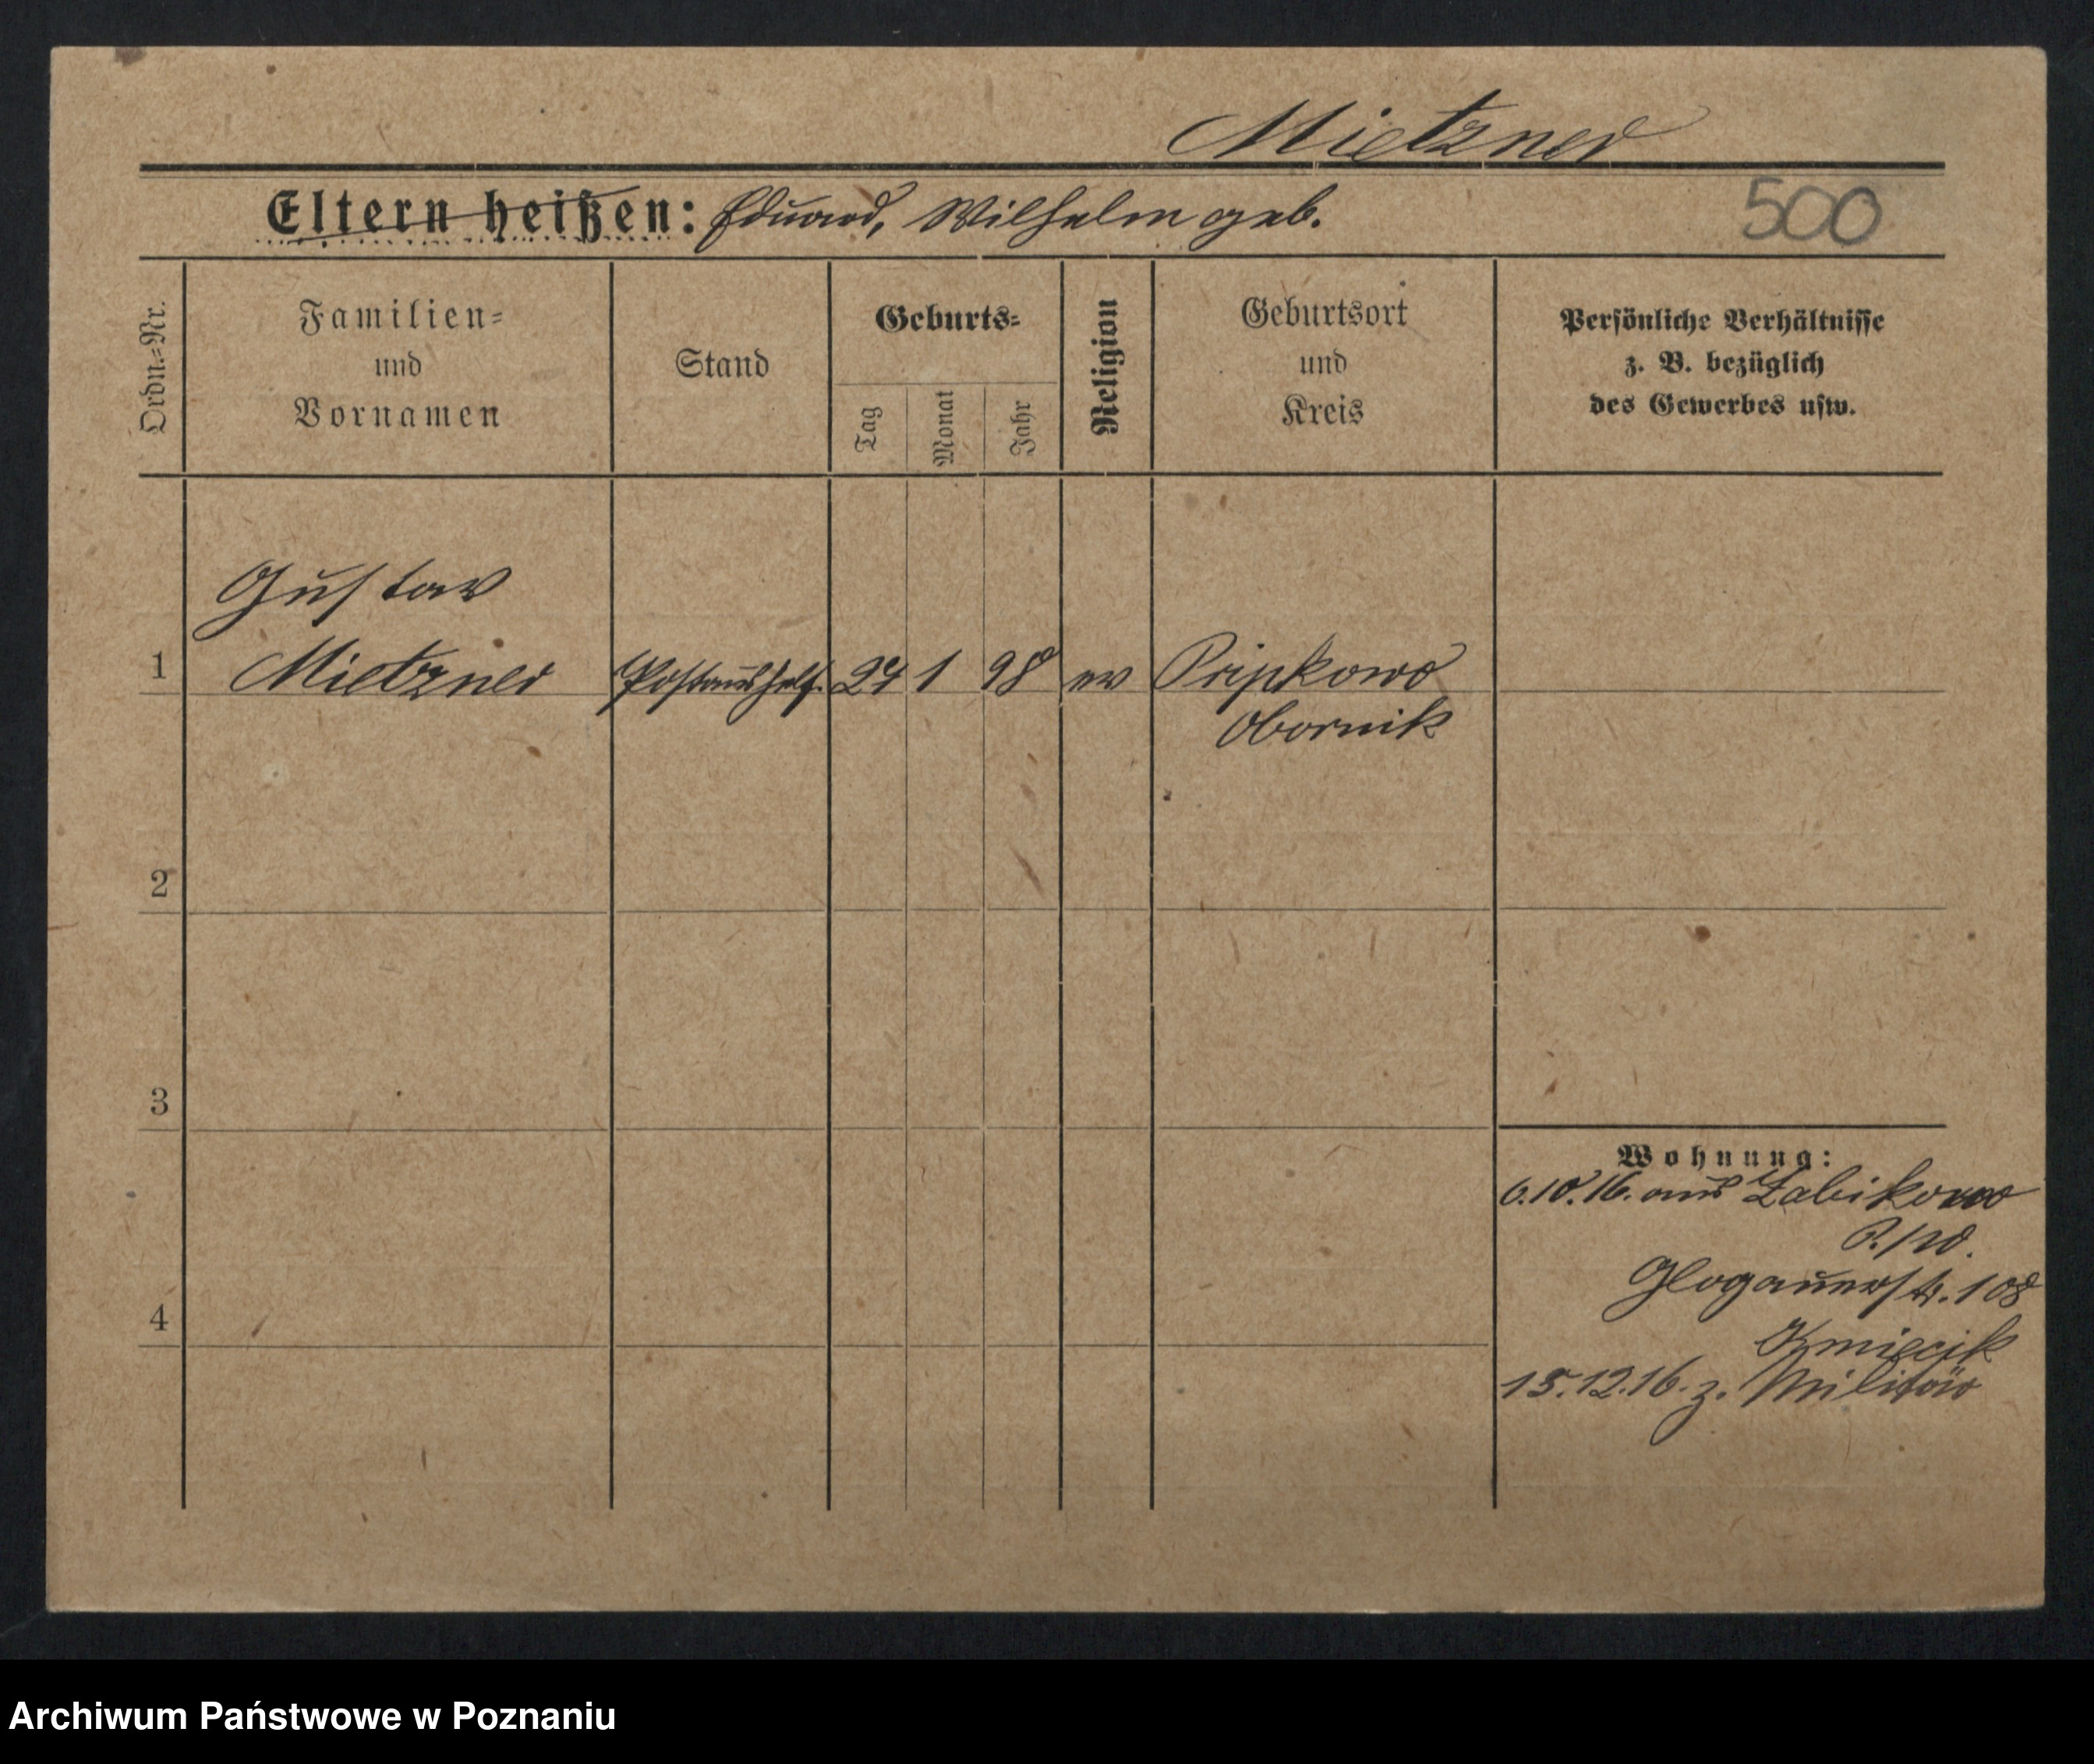 Mietzner
Eltern heißen: Eduard, Wilhelm geb.
500
Ordn.-Nr.
Familien-
und
Vornamen
Stand
Geburts-
Tag
Monat
Jahr
Religion
Geburtsort
und
Kreis
Persönliche Verhältnisse
z. B. bezüglich
des Gewerbes usw.
Gustav
1 Mietzner Postaushelf. 24 1 98 ev Pripkowo
Obornik
2
3
4
Wohnung:
6.10.16. aus Zabikowo
P./W.
Glogauerstr. 108
Kmiecik
15.12.16. z. Militär
Archiwum Państwowe w Poznaniu